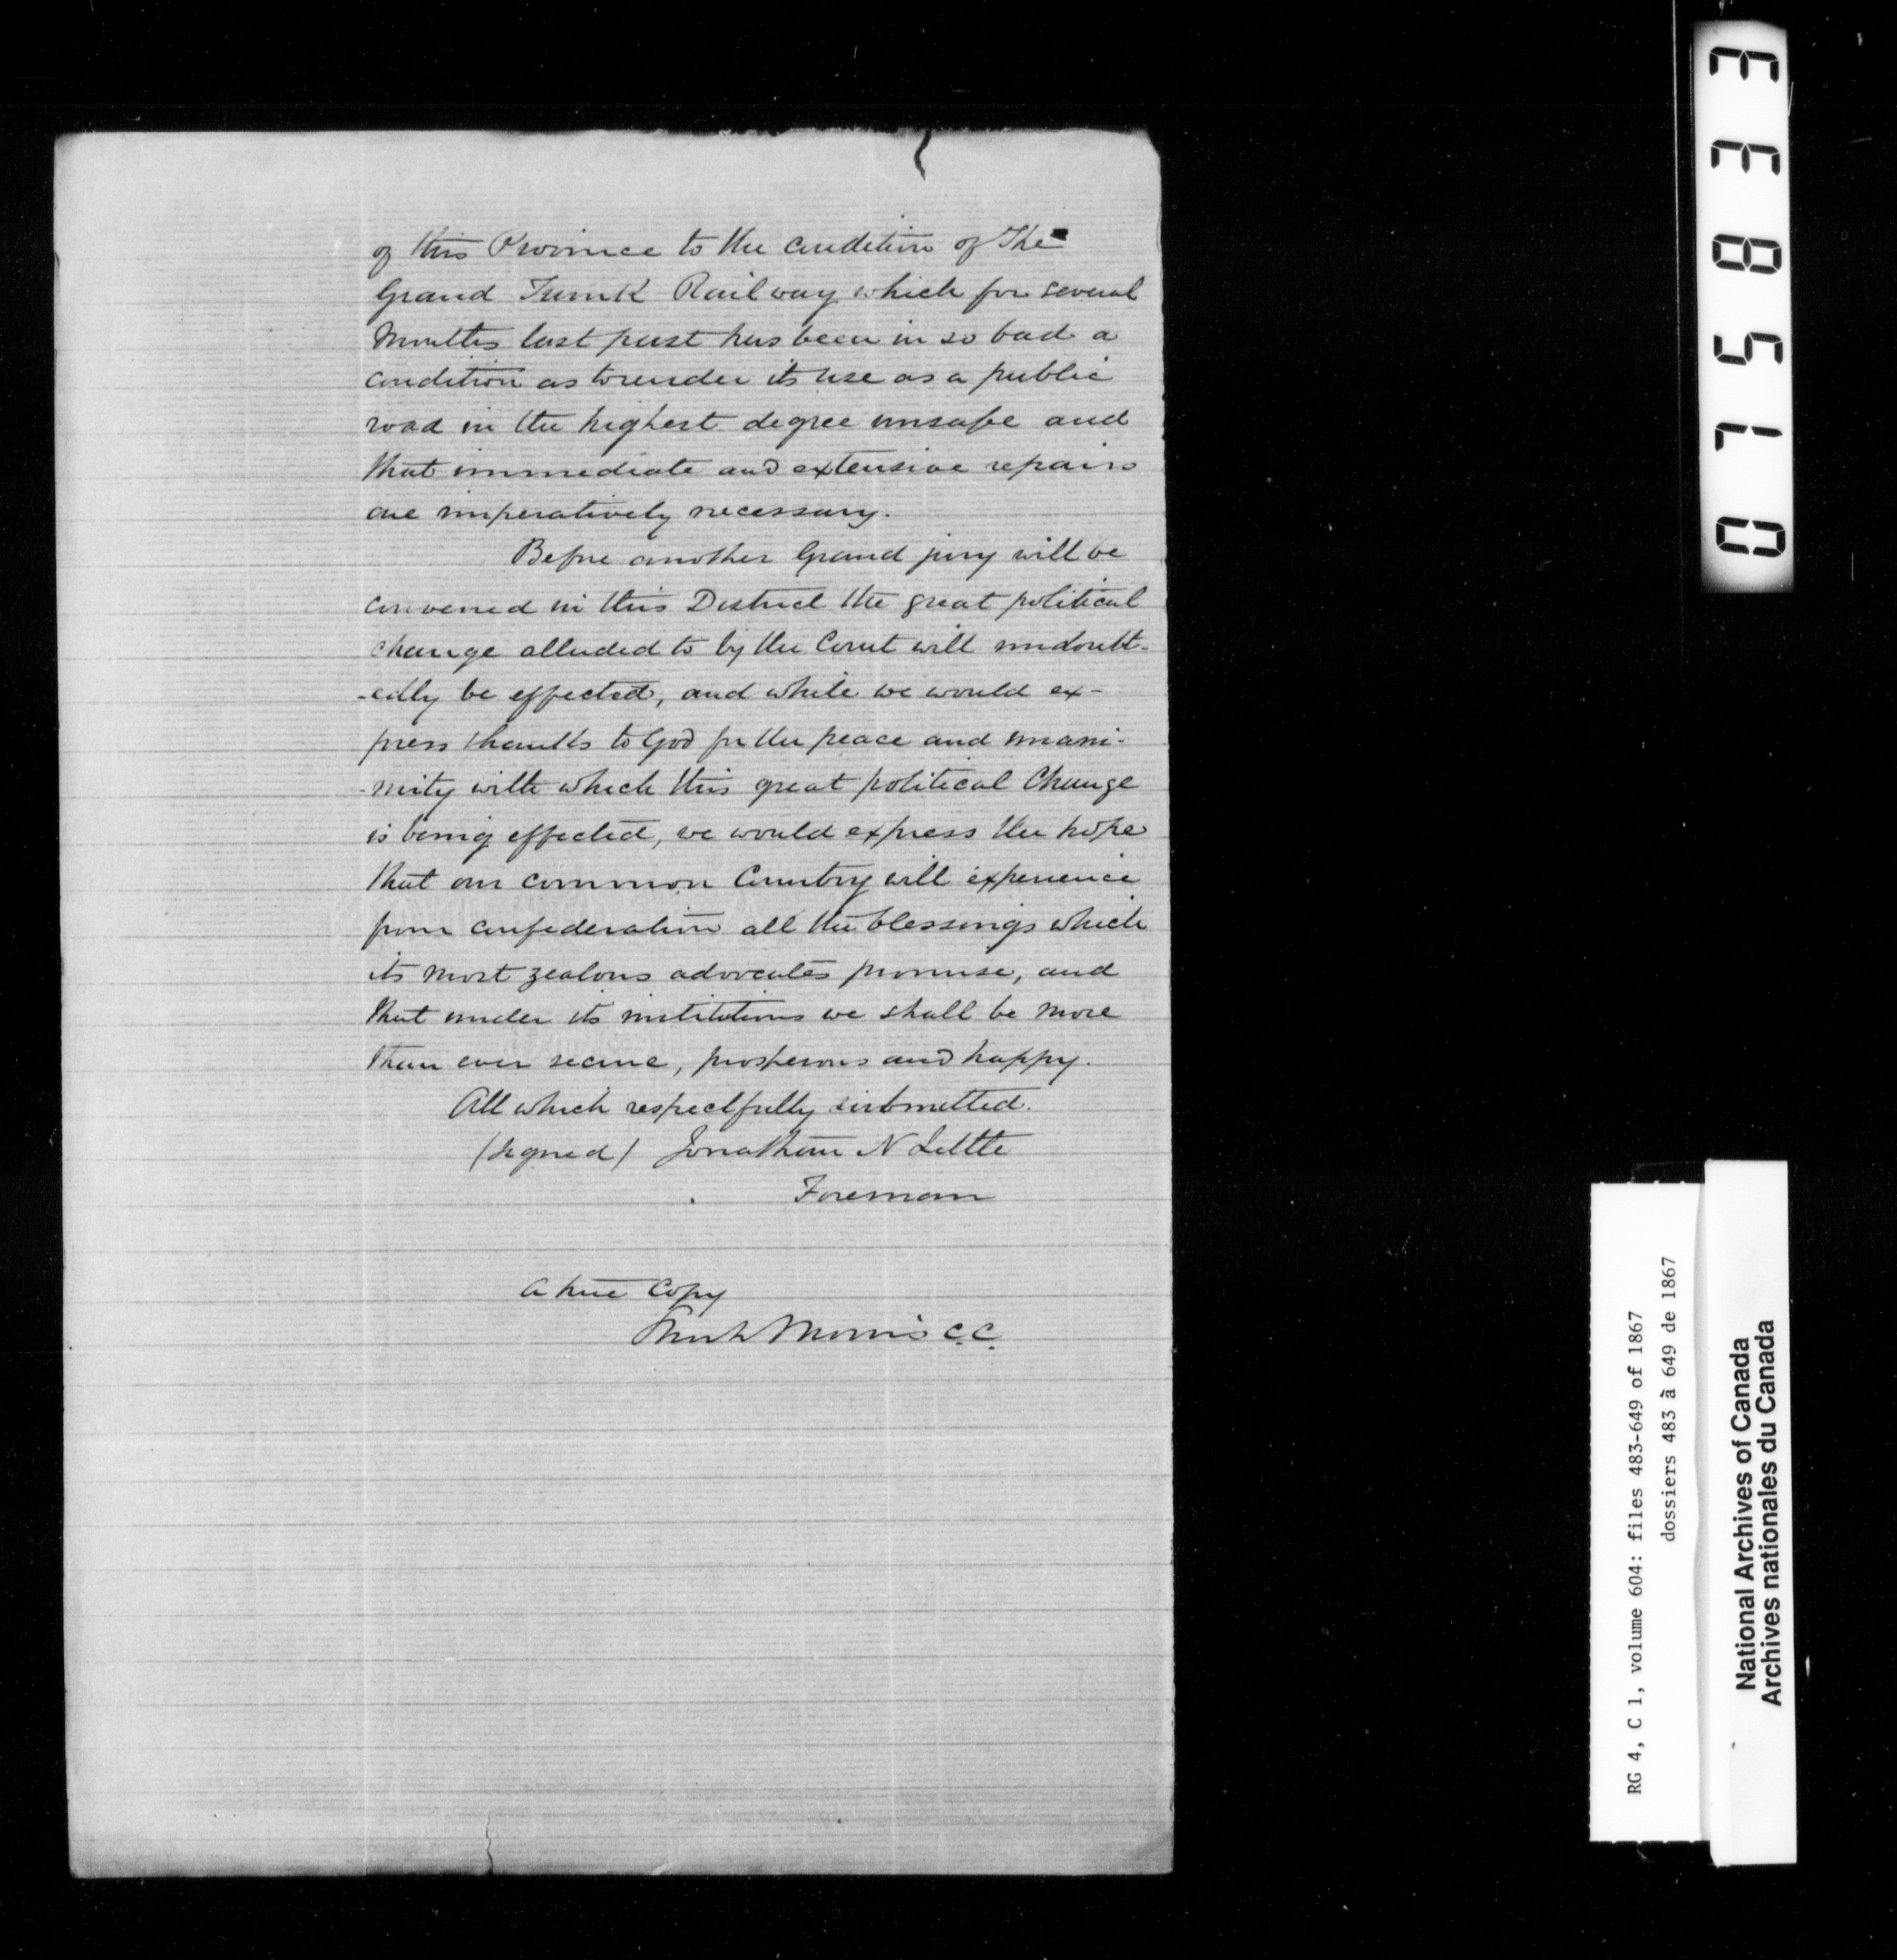 of this Province to the condition of The
Grand Trunk Railway which for several
months last past has been in so bad a
condition as to render its use as a public
road in the highest degree unsafe and
that immediate and extensive repairs
are imperatively necessary.
Before another Grand jury will be
convened in this District the great political
change alluded to by the Court will undoubt-
-edly be effected, and while we would ex-
press thanks to God for the peace and unani-
-mity with which this great political Change
is being effected, we would express the hope
that our common Country will experience
from confederation all the blessings which
its most zealous advocates promise, and
that under its institutions we shall be more
than ever secure, prosperous and happy.
All which respectfully submitted.
(Signed) Jonathan N Little
Foreman
A true Copy
Morris C.C.
015833
RG 4, C 1, volume 604: files 483-649 of 1867
dossiers 483 à 649 de 1867
National Archives of Canada
Archives nationales du Canada